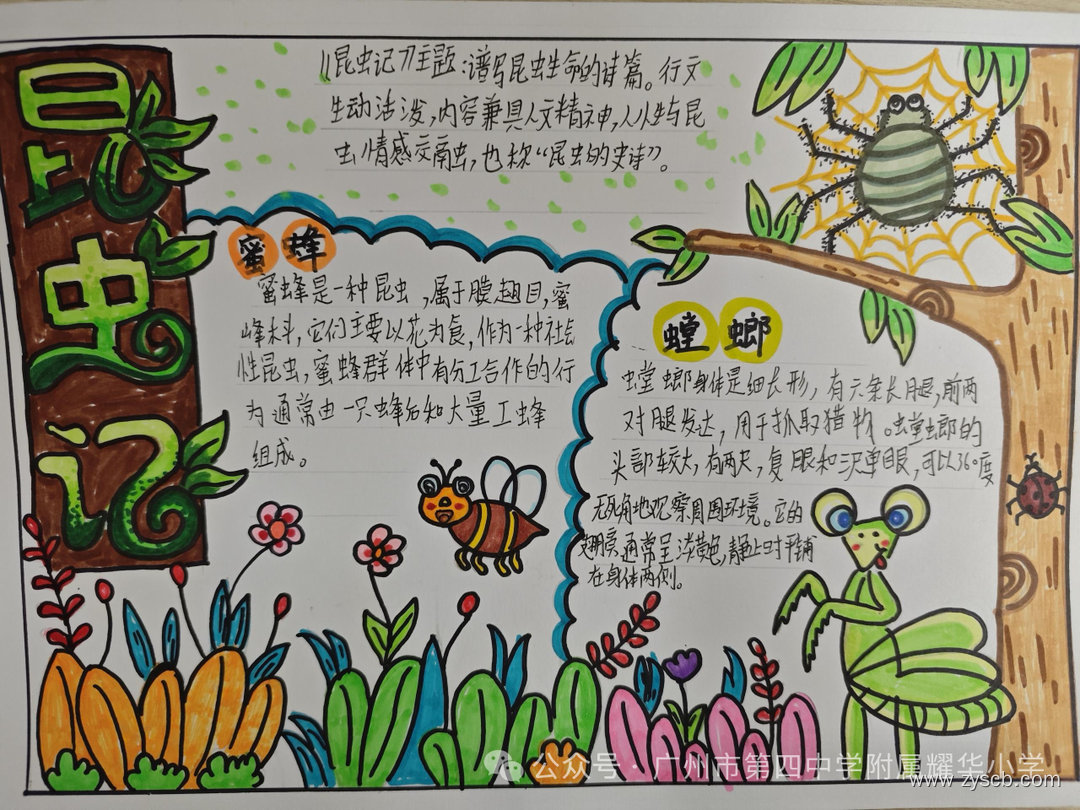 昆虫记
《昆虫记》主题:谱写昆虫生命的诗篇。行文
生动活泼,内容兼具人文精神,人性与昆
虫情感交融,也称“昆虫的史诗”。
蜜蜂
蜜蜂是一种昆虫,属于膜翅目,蜜
蜂科,它们主要以花为食,作为一种社会
性昆虫,蜜蜂群体中有分工合作的行
为通常由一只蜂后和大量工蜂
组成。
螳螂
螳螂身体是细长形,有六条长腿,前两
对腿发达,用于抓取猎物。螳螂的
头部较大,有两只,复眼和三只单眼,可以360度
无死角地观察周围环境。它的
翅膀通常呈淡黄色,静止时平铺
在身体两侧。
公众号·广州市第四中学附属耀华小学
www.zyscb.com